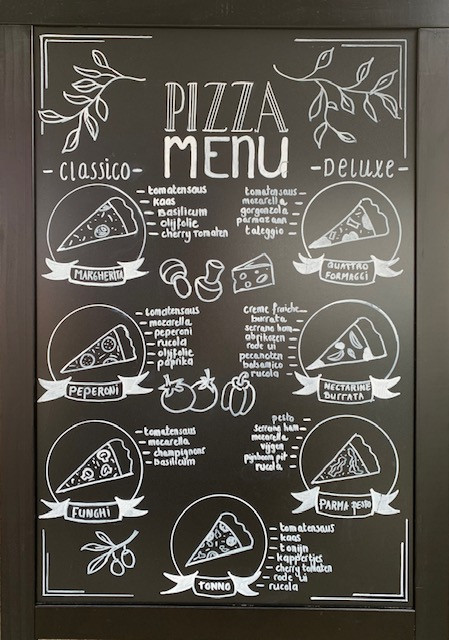 PIZZA
MENU
-Classico-
tomatensaus
kaas
Basilicum
olijfolie
cherry tomaten
MARGHERITA
tomatensaus
mozarella
peperoni
rucola
olijfolie
paprika
PEPERONI
tomatensaus
mozarella
champignons
basilicum
FUNGHI
-DeLuxe-
tomatensaus
mozarella
gorgonzola
parmazaan
taleggio
QUATTRO
FORMAGGI
creme fraiche
burrata
serrano ham
abrikozen
rode ui
pecanoten
balsamico
rucola
NECTARINE
BURRATA
pesto
serrano ham
mozarella
vijgen
pijnboom pit
rucola
PARMA PESTO
tomatensaus
kaas
tonijn
kappertjes
cherry tomaten
rode ui
rucola
TONNO